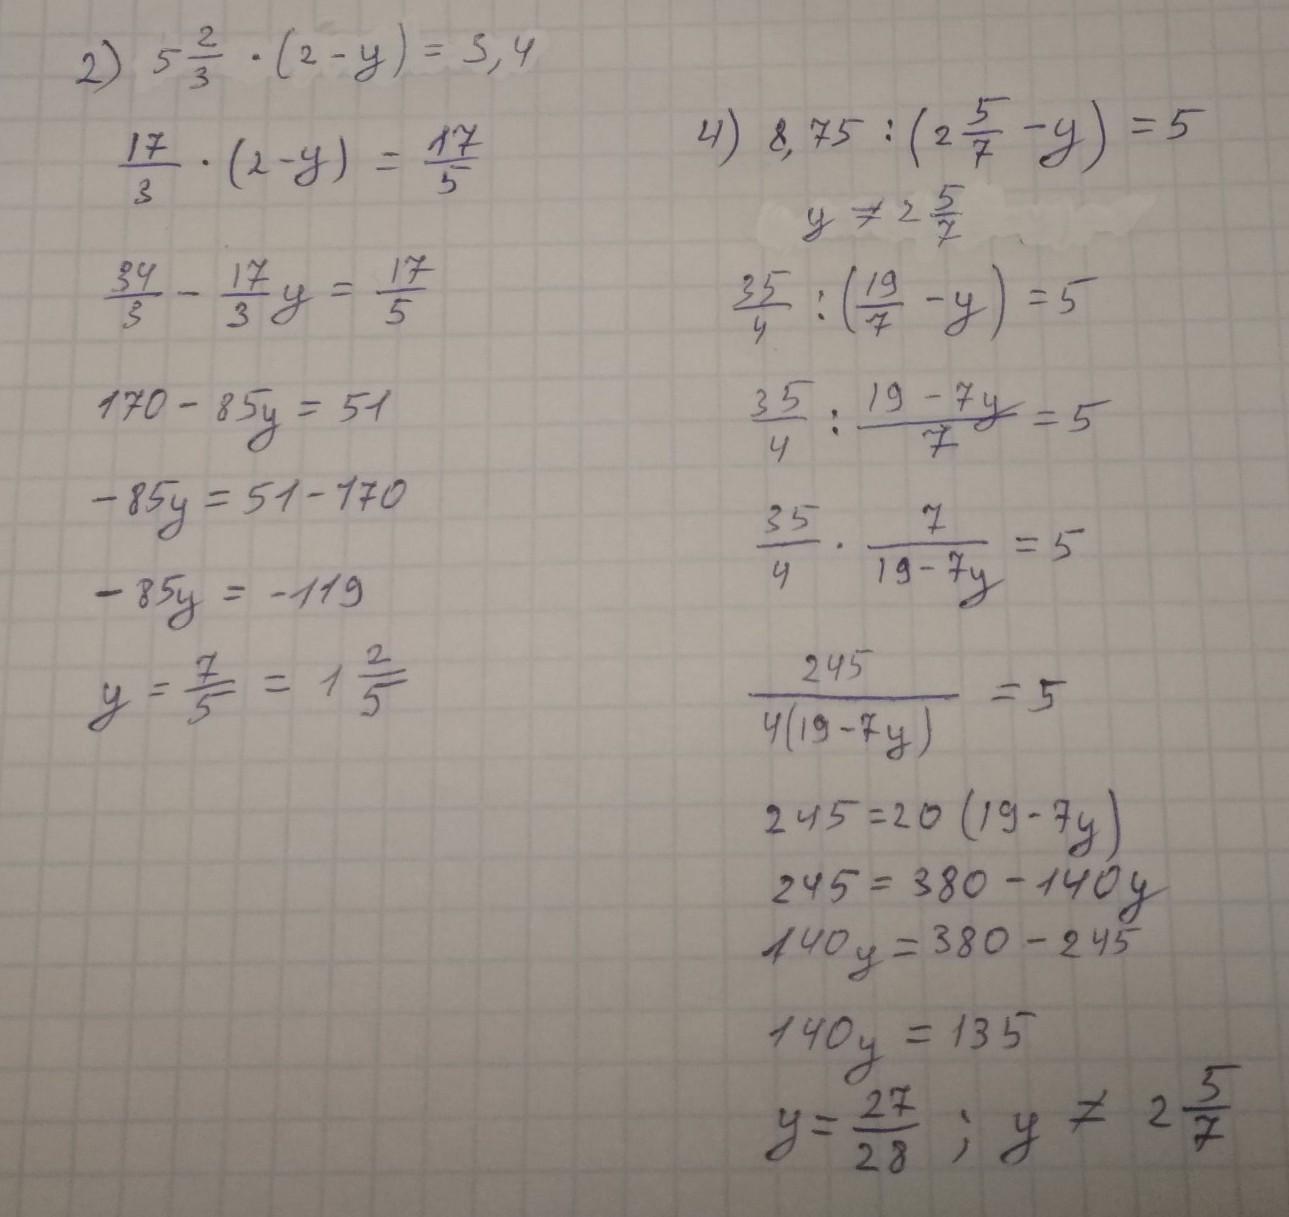 2) 5 2/3 · (2 - y) = 3,4
17/3 · (2 - y) = 17/5
34/3 - 17/3 y = 17/5
170 - 85y = 51
-85y = 51 - 170
-85y = -119
y = 7/5 = 1 2/5
4) 8,75 : (2 5/7 - y) = 5
y ≠ 2 5/7
35/4 : (19/7 - y) = 5
35/4 : (19 - 7y)/7 = 5
35/4 · 7/(19 - 7y) = 5
245/(4(19 - 7y)) = 5
245 = 20 (19 - 7y)
245 = 380 - 140y
140y = 380 - 245
140y = 135
y = 27/28 ; y ≠ 2 5/7